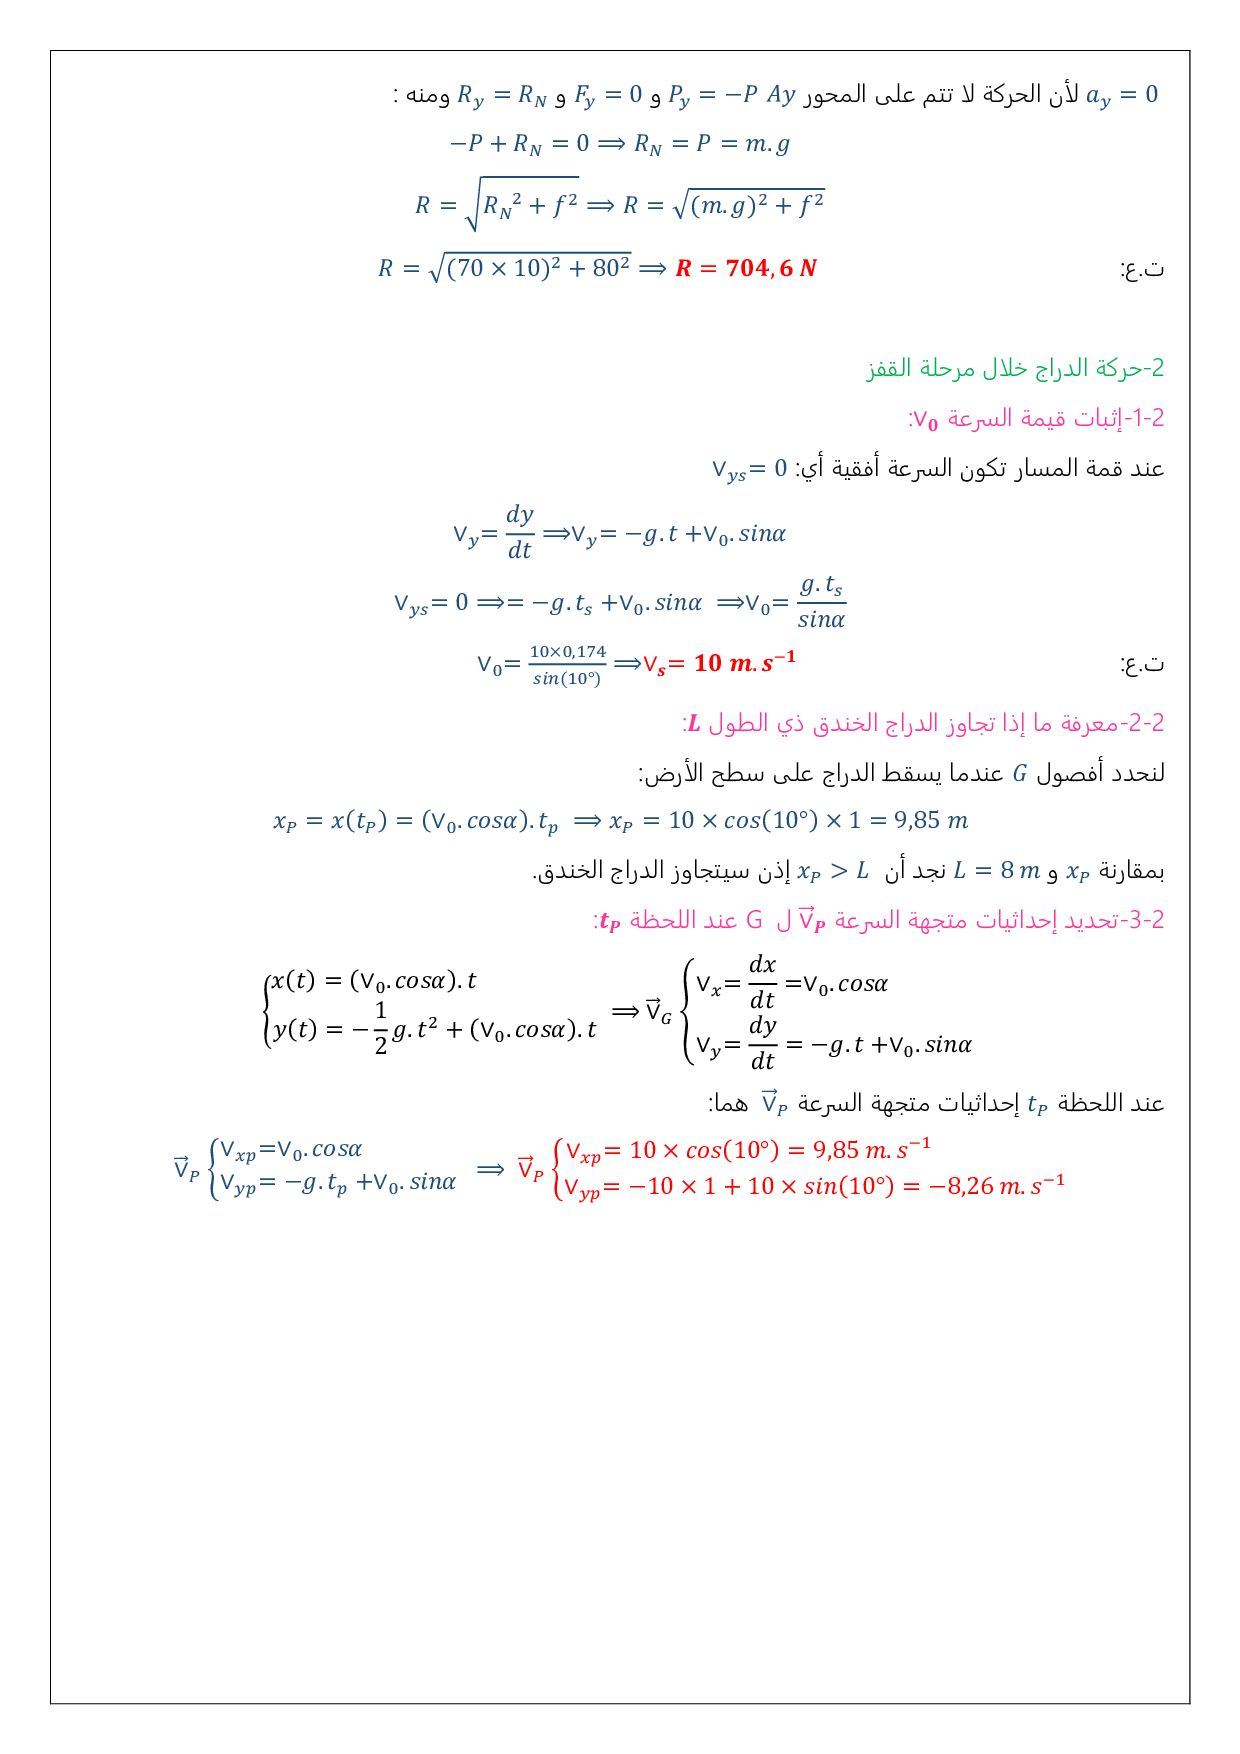 a_y = 0 لأن الحركة لا تتم على المحور P_y = −P Ay و F_y = 0 و R_y = R_N ومنه :
−P + R_N = 0 ⟹ R_N = P = m.g
R = √(R_N² + f²) ⟹ R = √((m.g)² + f²)
ت.ع: R = √((70 × 10)² + 80²) ⟹ R = 704,6 N
2-حركة الدراج خلال مرحلة القفز
1-2-إثبات قيمة السرعة v₀:
عند قمة المسار تكون السرعة أفقية أي: v_ys = 0
v_y = dy/dt ⟹ v_y = −g.t + v₀.sinα
v_ys = 0 ⟹= −g.t_s + v₀.sinα ⟹ v₀ = g.t_s/sinα
ت.ع: v₀ = 10×0,174/sin(10°) ⟹ v_s = 10 m.s⁻¹
2-2-معرفة ما إذا تجاوز الدراج الخندق ذي الطول L:
لنحدد أفصول G عندما يسقط الدراج على سطح الأرض:
x_P = x(t_P) = (v₀.cosα).t_p ⟹ x_P = 10 × cos(10°) × 1 = 9,85 m
بمقارنة x_P و L = 8 m نجد أن x_P > L إذن سيتجاوز الدراج الخندق.
3-2-تحديد إحداثيات متجهة السرعة v⃗_P ل G عند اللحظة t_P:
{x(t) = (v₀.cosα).t ; y(t) = −1/2 g.t² + (v₀.cosα).t ⟹ v⃗_G {v_x = dx/dt = v₀.cosα ; v_y = dy/dt = −g.t + v₀.sinα
عند اللحظة t_P إحداثيات متجهة السرعة v⃗_P هما:
v⃗_P {v_xp = v₀.cosα ; v_yp = −g.t_p + v₀.sinα ⟹ v⃗_P {v_xp = 10 × cos(10°) = 9,85 m.s⁻¹ ; v_yp = −10 × 1 + 10 × sin(10°) = −8,26 m.s⁻¹